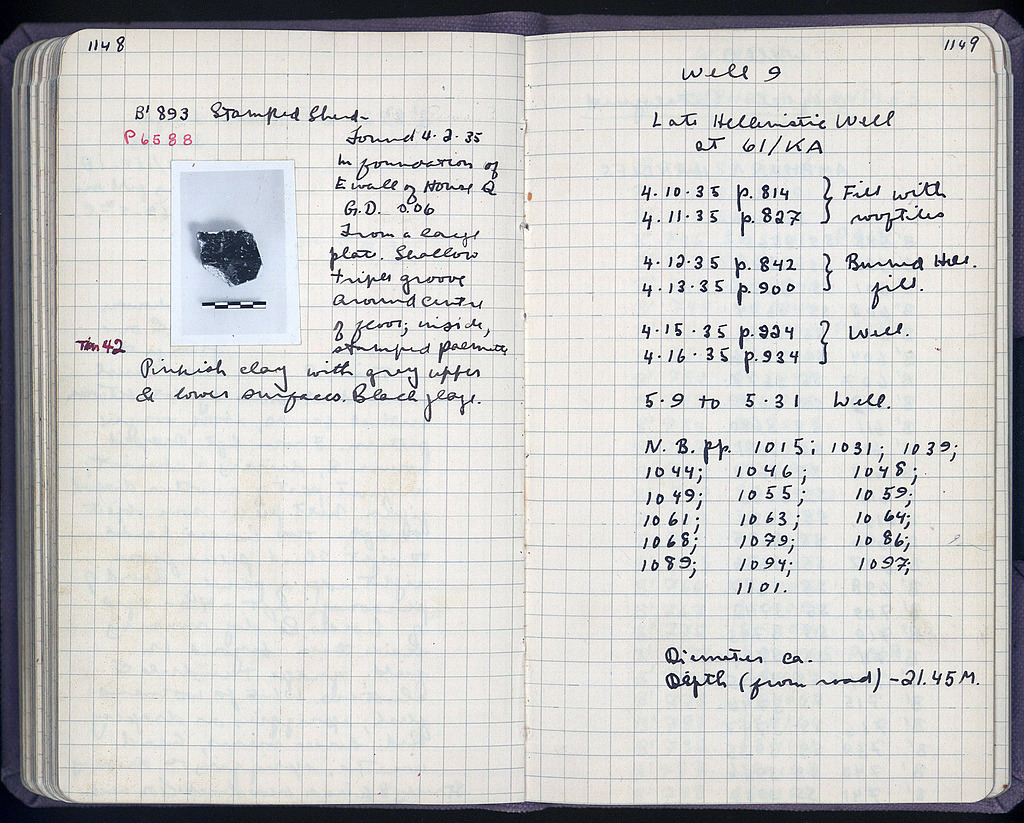 1148
B' 893 Stamped Sherd
P 6588
Found 4·2·35
In foundation of
E wall of House Q
G.D. 0.06
From a large
plate. Shallow
triple groove
around centre
of floor; inside,
stamped palmette
42
Pinkish clay with grey upper
& lower surfaces. Black glaze.
1149
Well 9
Late Hellenistic Well
at 61/KA
4·10·35 p. 814 } Fill with
4·11·35 p. 827 rooftiles
4·12·35 p. 842 } Burned Hell.
4·13·35 p. 900 fill.
4·15·35 p. 924 } Well.
4·16·35 p. 934
5·9 to 5·31 Well.
N. B. pp. 1015; 1031; 1039;
1044; 1046; 1048;
1049; 1055; 1059;
1061; 1063; 1064;
1068; 1079; 1086;
1089; 1094; 1097;
1101.
Diameter ca.
Depth (from road) -21.45 M.